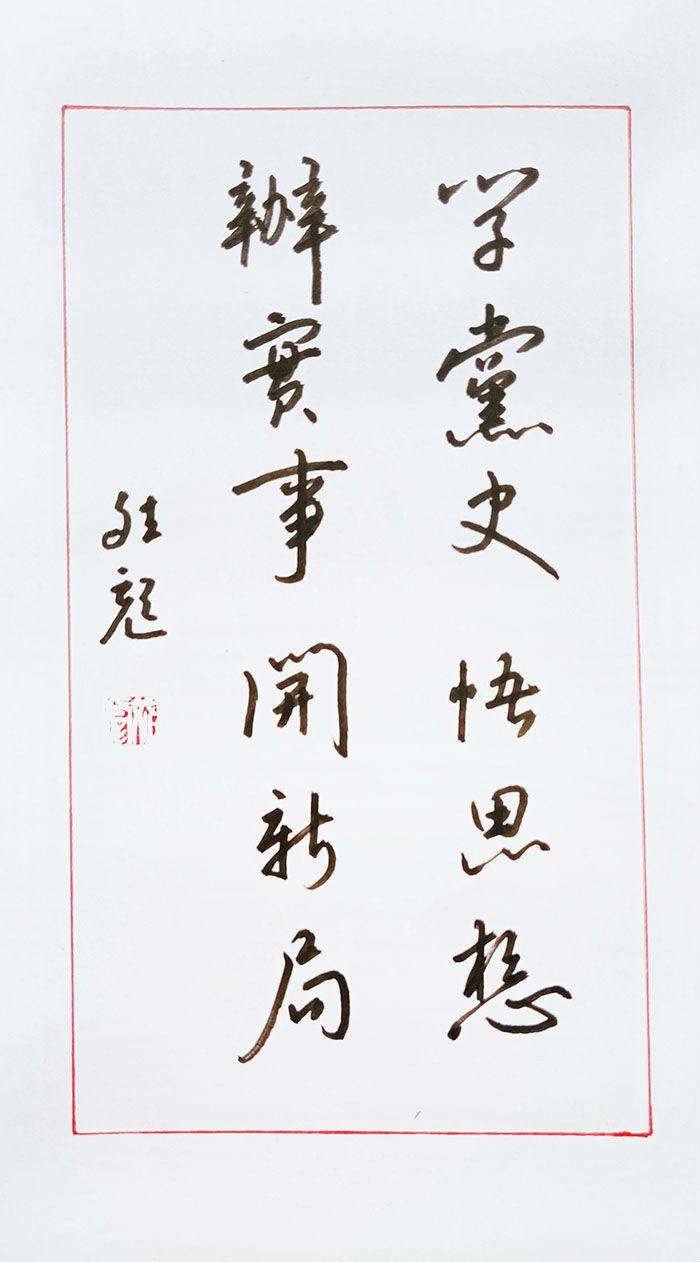 学黨史悟思想
辦實事開新局